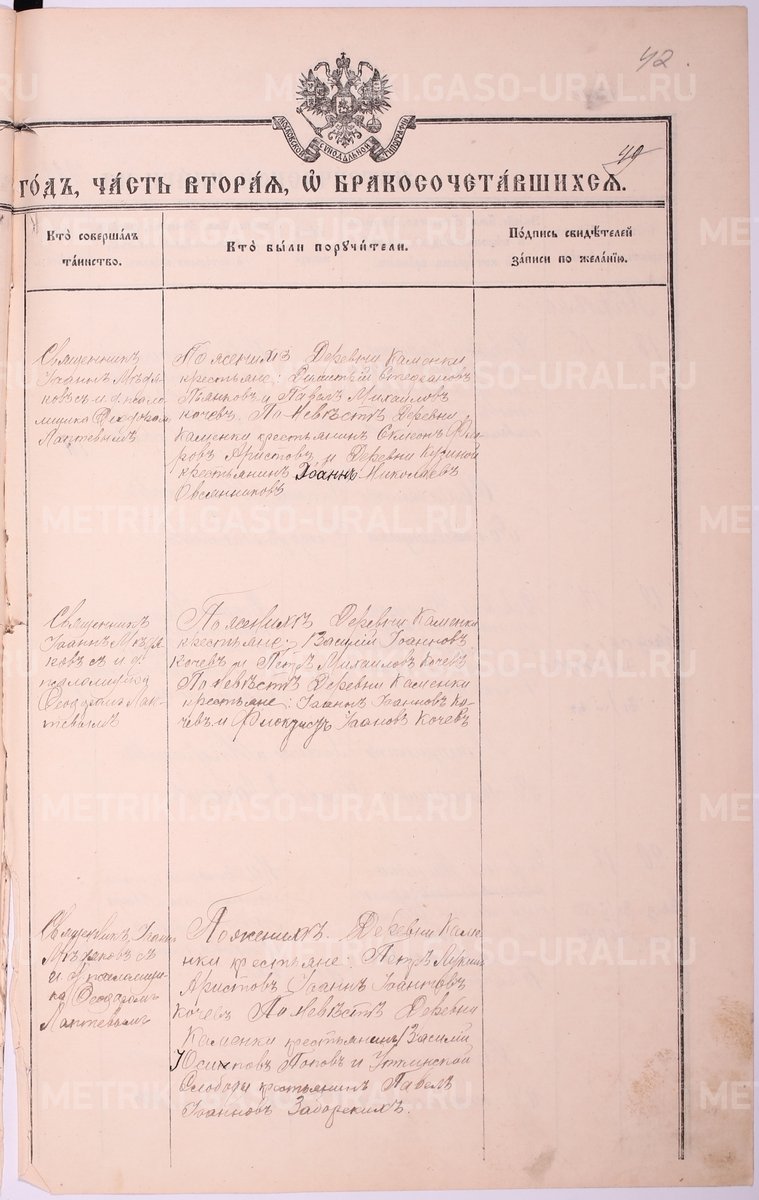 42.
МОСКОВСКОЙ СУНОДАЛЬНОЙ ТИПОГРАФІИ
49
ГОДЪ, ЧАСТЬ ВТОРАЯ, Ѿ БРАКОСОЧЕТАВШИХСЯ.
Кто совершалъ
таинство.
Кто были поручители.
Подпись свидѣтелей
записи по желанію.
Священникъ
Іоаннъ
ковъ съ и. д. псало
мщика
Лаптевымъ
По женихѣ Деревни Каменки
крестьяне: Стефановъ
Пьянковъ и Павелъ Михаиловъ
Кочевъ. По невѣстѣ Деревни
Каменки крестьянинъ Симеонъ
ровъ Аристовъ и Деревни Кузиной
крестьянинъ Іоаннъ Николаевъ
Овсянниковъ
Священникъ
Іоаннъ
ковъ съ и. д.
псаломщика
Ѳеодоромъ Лап-
тевымъ
По женихѣ Деревни Каменки
крестьяне: Василій Іоанновъ
Кочевъ и Петръ Михаиловъ Кочевъ
По невѣстѣ Деревни Каменки
крестьяне: Іоаннъ Іоанновъ Ко-
чевъ и Іоановъ Кочевъ
Священникъ Іоаннъ
съ
и. д. псаломщи-
ка Ѳеодоромъ
Лаптевымъ
По женихѣ Деревни Каме
нки крестьяне: Петръ
Аристовъ Іоаннъ Іоанновъ
Кочевъ По невѣстѣ Деревни
Каменки крестьянинъ Василій
Юсиповъ Поповъ и Уткинской
Слободы крестьянинъ Павелъ
Іоанновъ Заборскихъ.
METRIKI.GASO-URAL.RU